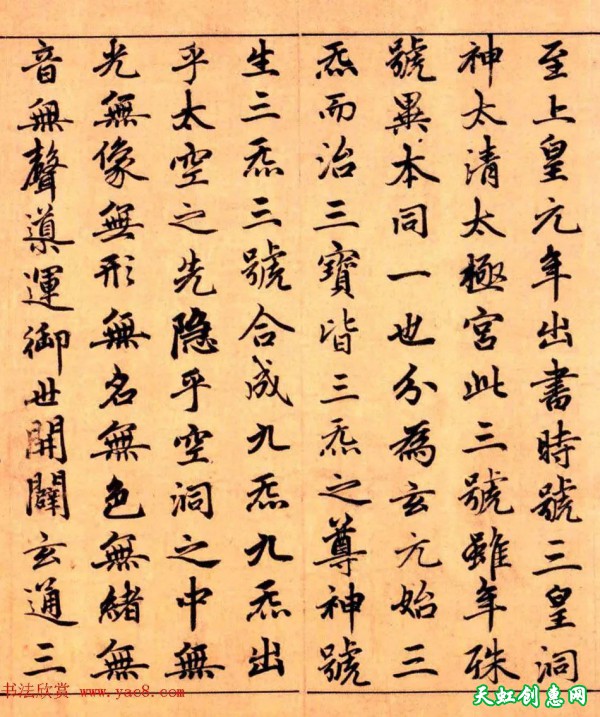 至上皇元年出書時號三皇洞
神太清太極宮此三號雖年殊
號異本同一也分為玄元始三
炁而治三寶皆三炁之尊神號
生三炁三號合成九炁九炁出
乎太空之先隐乎空洞之中無
光無像無形無名無色無緒無
音無聲導運御世開闢玄通三
书法欣赏 www.yac8.com
天虹创惠网